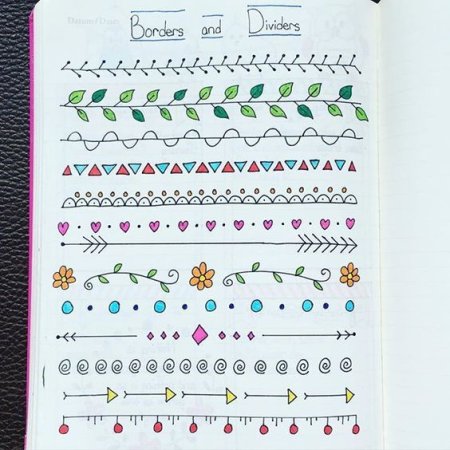 Borders and Dividers